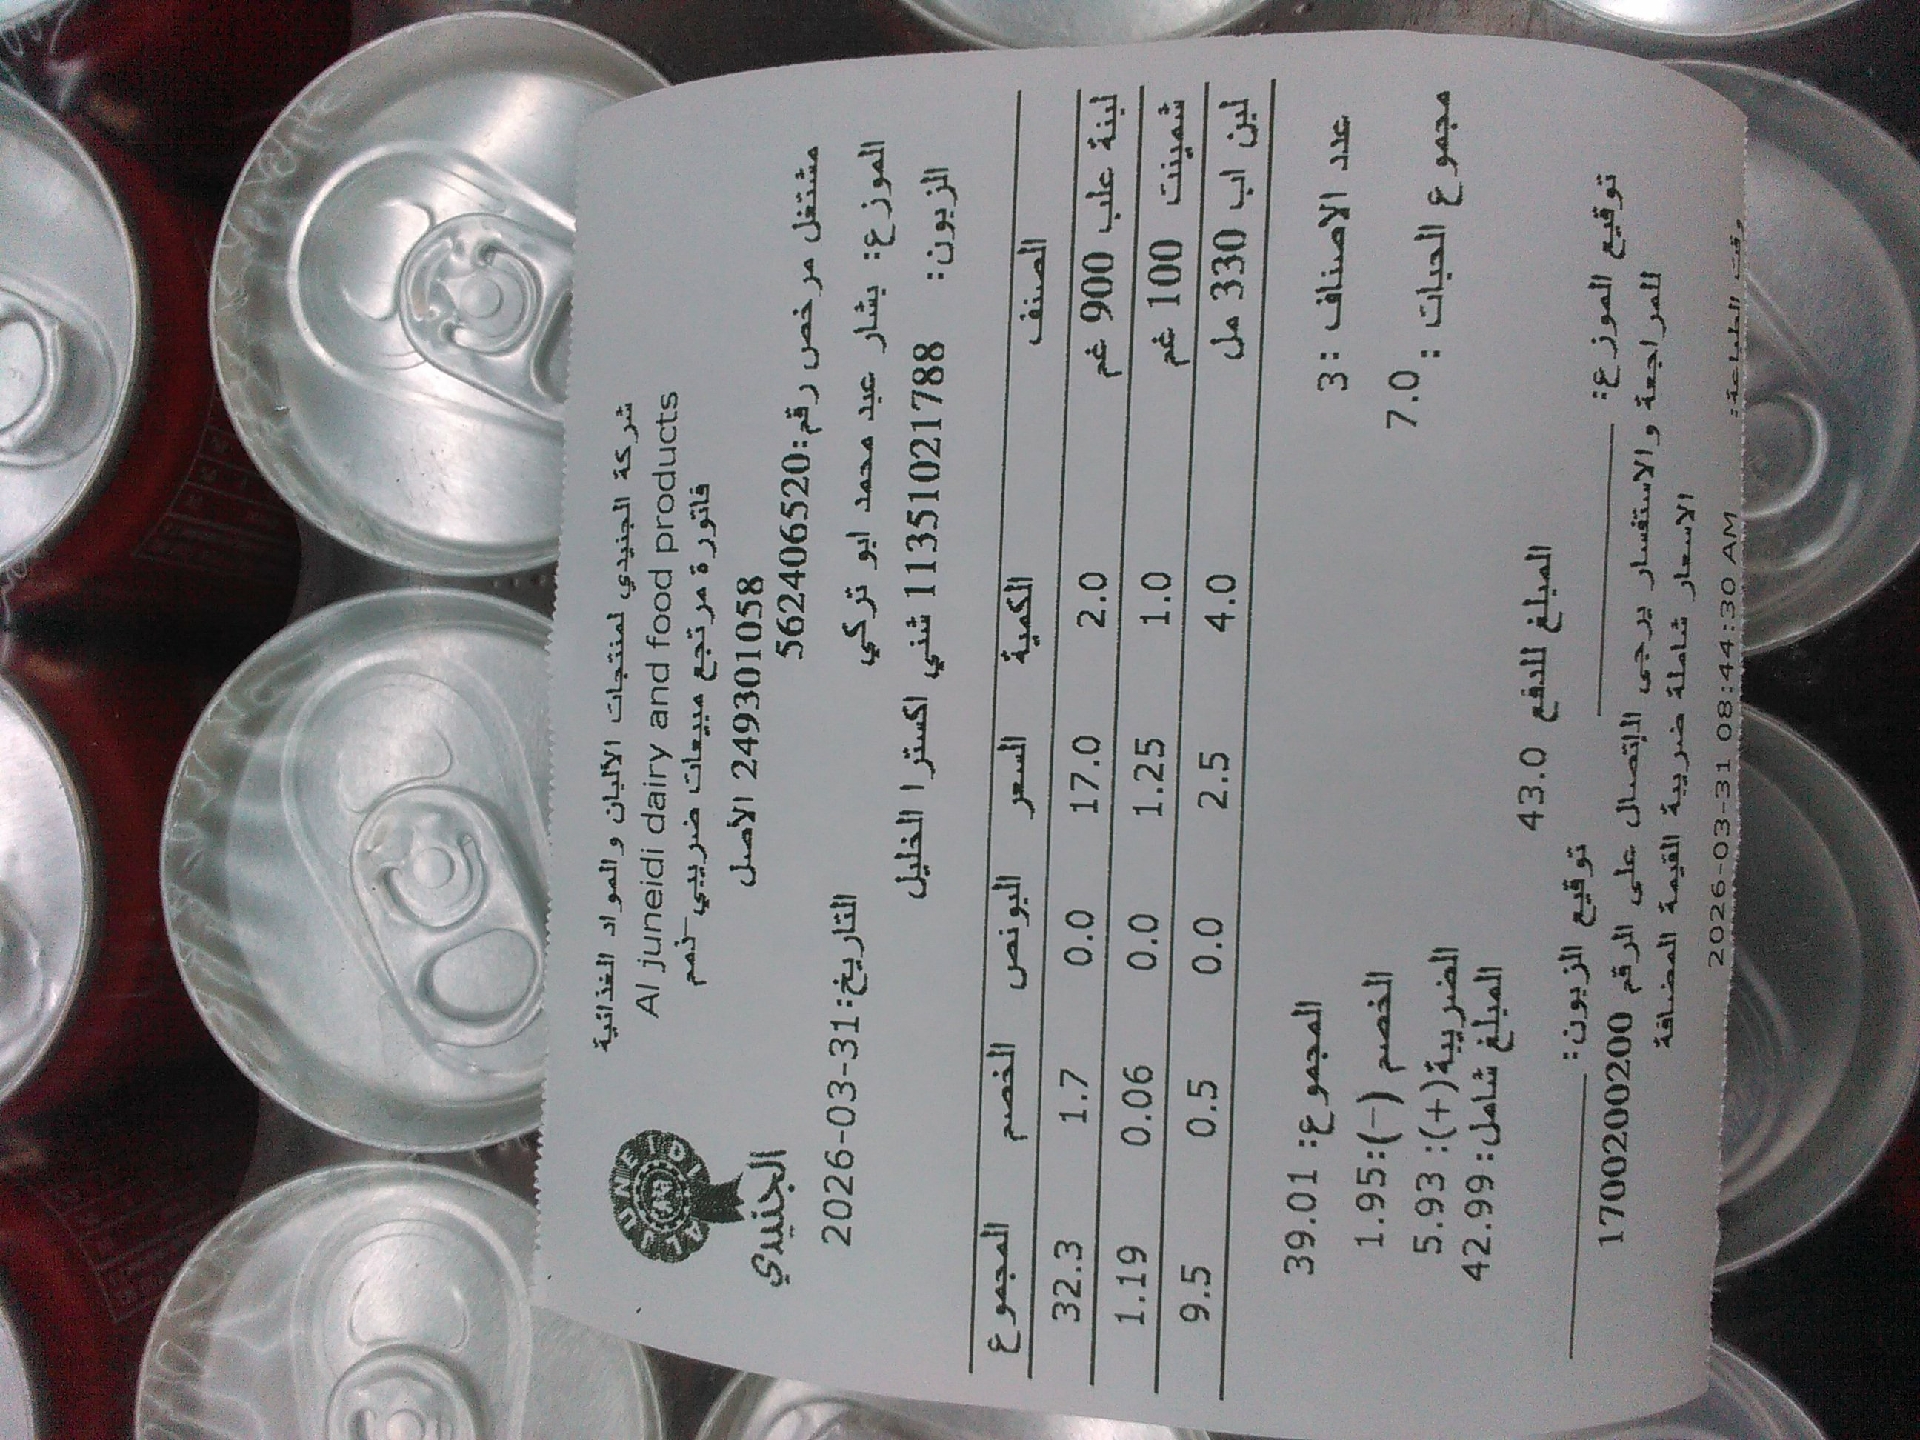 شركة الجنيدي لمنتجات الالبان والمواد الغذائية
Al juneidi dairy and food products
فاتورة مرتجع مبيعات ضريبي_ذمم
249301058 الاصل
مشتغل مرخص رقم:562406520
AL JUNEIDI
الجنيدي
التاريخ:2026-03-31
الموزع: بشار عبد محمد ابو تركي
الزبون: 11351021788 شني اكسترا الخليل
الصنف الكمية السعر البونص الخصم المجموع
لبنة علب 900 غم 2.0 17.0 0.0 1.7 32.3
شمينت 100 غم 1.0 1.25 0.0 0.06 1.19
لبن اب 330 مل 4.0 2.5 0.0 0.5 9.5
عدد الاصناف : 3
المجموع: 39.01
مجموع الحبات : 7.0
الخصم (-):1.95
الضريبة(+): 5.93
المبلغ شامل: 42.99
المبلغ للدفع 43.0
توقيع الموزع:
توقيع الزبون:
للمراجعة والاستفسار يرجى الإتصال على الرقم 1700200200
الاسعار شاملة ضريبة القيمة المضافة
وقت الطباعة: 2026-03-31 08:44:30 AM